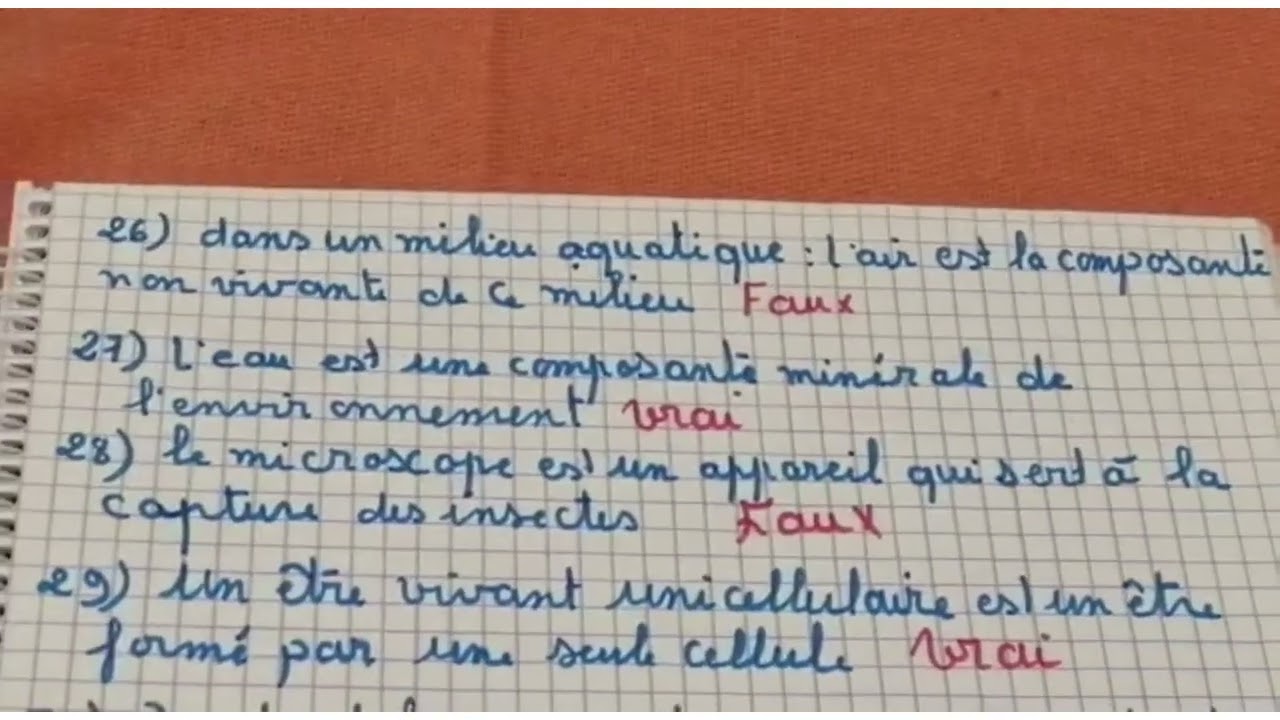 26) dans un milieu aquatique : l'air est la composante
non vivante de ce milieu Faux
27) L'eau est une composante minérale de
l'environnement vrai
28) le microscope est un appareil qui sert à la
capture des insectes Faux
29) Un être vivant unicellulaire est un être
formé par une seule cellule Vrai